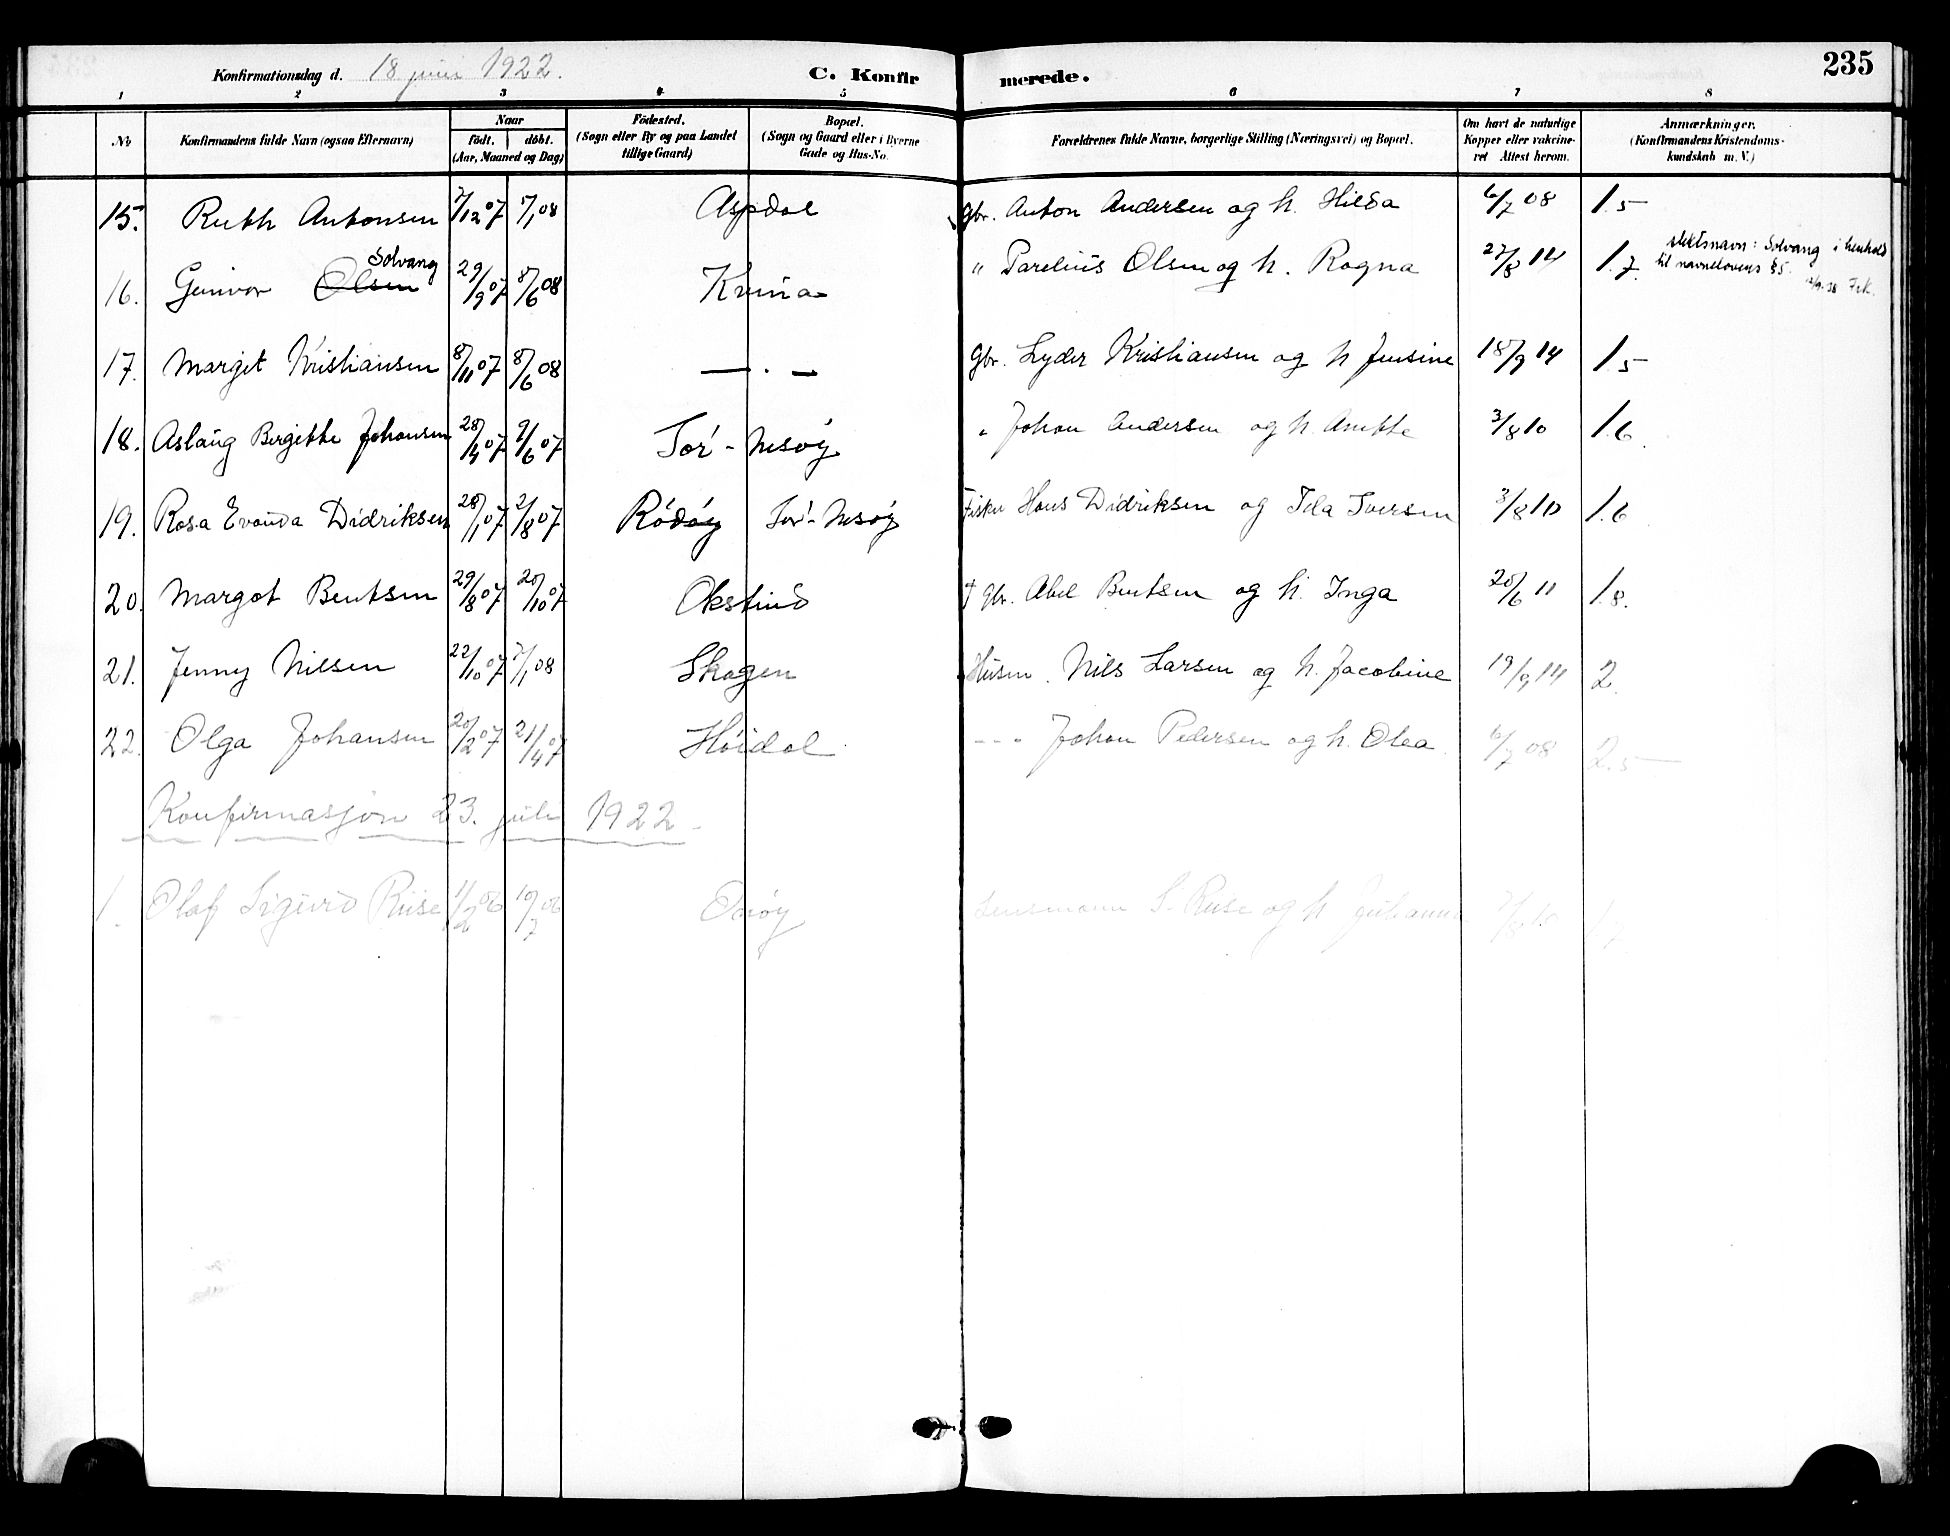 235
Konfirmationsdag d. 18 juni 1922. C. Konfirmerede.
1 2 3 4 5 6 7 8
No Konfirmandens fulde Navn (ogsaa Efternavn) Naar födt. döbt. (Aar, Maaned og Dag) Födested. (Sogn eller By og paa Landet tillige Gaard) Bopæl. (Sogn og Gaard eller i Byerne Gade og Hus-No. Forældrenes fulde Navne, borgerlige Stilling (Næringsvei) og Bopæl. Om havt de naturlige Kopper eller vakcineret Attest herom. Anmærkninger. (Konfirmandens Kristendomskundskab m. V.)
15. Ruth Antonsen 7/12 07 7/1 08 Aspdal gbr. Anton Andersen og h. Hilda 6/7 08 1.5
16. Gunvor Olsen Solvang 29/9 07 8/6 08 Kvina " Parelius Olsen og h. Ragna 27/8 14 1.7. slektsnavn: Solvang i henhold til navnelovens §5.
17. Margit Kristiansen 8/11 07 8/6 08 — . — gbr. Lyder Kristiansen og h Jensine 18/9 14 1.5
18. Aslaug Bergitte Johansen 28/4 07 9/6 07 Sör-Nesöy " Johan Andersen og h. Anette 3/8 10 1.6.
19. Rosa Evanda Didriksen 28/1 07 2/8 07 Rödöy Sör-Nesöy Fisker Hans Didriksen og Ida Iversen 3/8 10 1.6
20. Margot Bentsen 29/8 07 20/10 07 Okstind † gbr. Abel Bentsen og h. Inga 20/6 11 1.8.
21. Jenny Nilsen 22/10 07 7/1 08 Skogen Husm. Nils Larsen og h. Jacobine 19/9 14 2.
22. Olga Johansen 20/2 07 21/4 07 Höidal - - - Johan Pedersen og h. Olea 6/7 08 2.5
Konfirmasjon 23. juli 1922
1. Olaf Sigurd Riise 1/2 06 10/7 06 Onöy Lensmann S. Riise og h Johanne